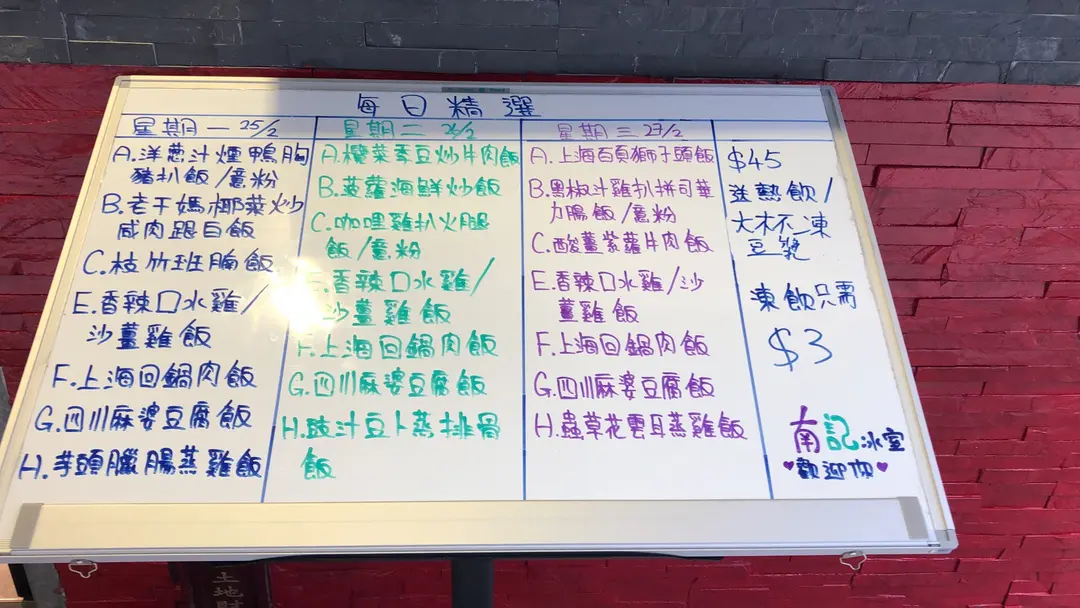 每日精選
星期一 25/2
A.洋葱汁煙鴨胸
豬扒飯/意粉
B.老干媽椰菜炒
咸肉跟白飯
C.枝竹班腩飯
E.香辣口水雞/
沙薑雞飯
F.上海回鍋肉飯
G.四川麻婆豆腐飯
H.芋頭臘腸蒸雞飯
星期二 26/2
A.欖菜香豆炒片肉飯
B.菠蘿海鮮炒飯
C.咖哩雞扒火腿
飯/意粉
E.香辣口水雞/
沙薑雞飯
F.上海回鍋肉飯
G.四川麻婆豆腐飯
H.豉汁豆卜蒸排骨
飯
星期三 27/2
A.上海百頁獅子頭飯
B.黑椒汁雞扒拼司華
力腸飯/意粉
C.酸薑紫蘿片肉飯
E.香辣口水雞/沙
薑雞飯
F.上海回鍋肉飯
G.四川麻婆豆腐飯
H.蟲草花雲耳蒸雞飯
$45
送熱飲/
大杯凍
豆漿
凍飲只需
$3
南記冰室
歡迎你
土地財